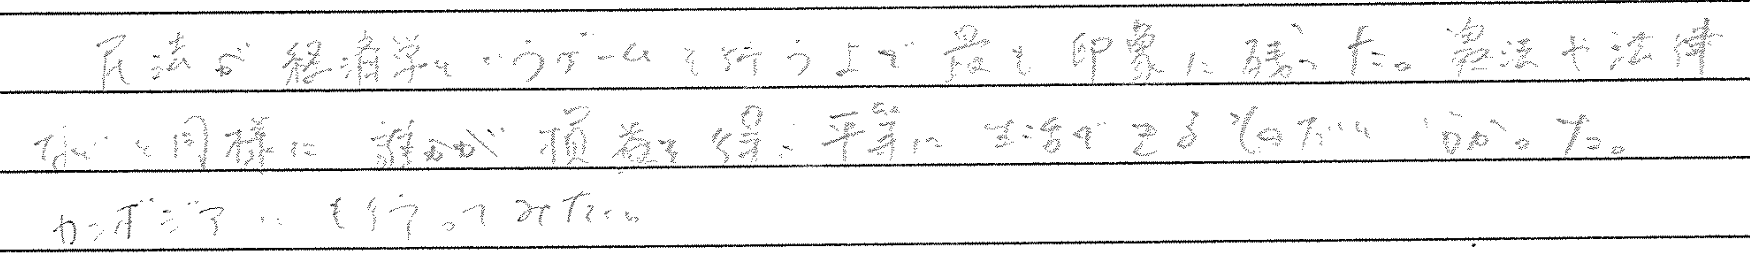 民法が経済学というゲームを行う上で最も印象に残った。憲法や法律
などと同様に誰かが損益を得、平等に生活ができるものだと分かった。
カンボジアにも行ってみたい。